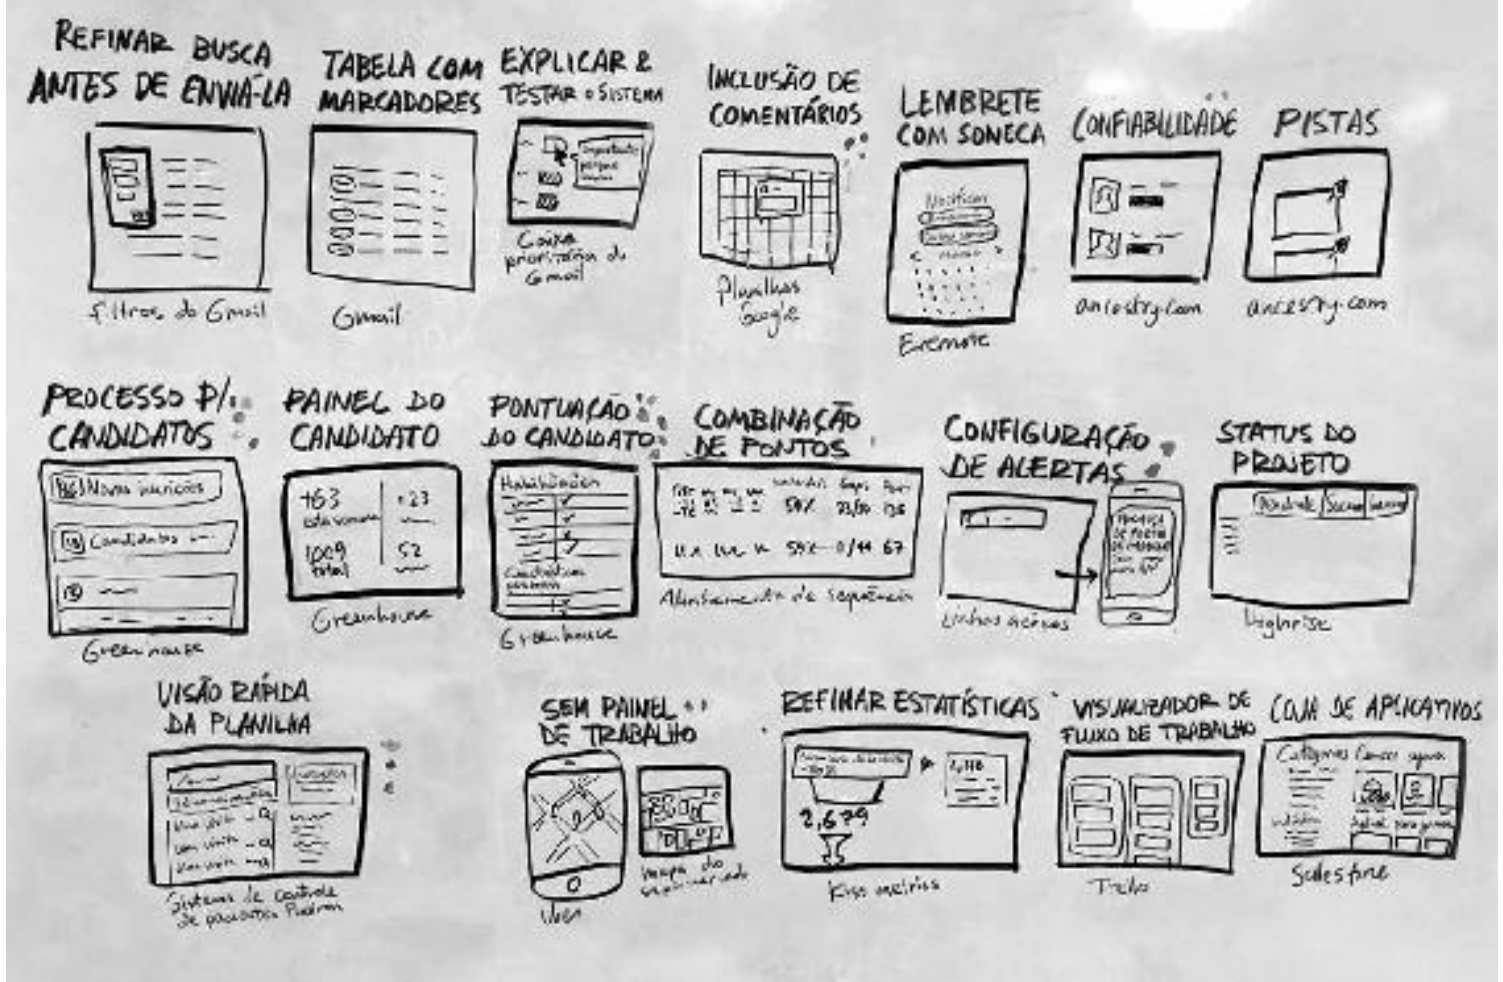 REFINAR BUSCA
ANTES DE ENVIÁ-LA
filtros do Gmail
TABELA COM
MARCADORES
Gmail
EXPLICAR &
TESTAR O SISTEMA
Importante
porque
Caixa
prioritária do
Gmail
INCLUSÃO DE
COMENTÁRIOS
Planilhas
Google
LEMBRETE
COM SONECA
Evernote
CONFIABILIDADE
ancestry.com
PISTAS
ancestry.com
PROCESSO P/
CANDIDATOS
Novas inscrições
Candidatos
Greenhouse
PAINEL DO
CANDIDATO
+63
esta semana
+23
1009
total
52
Greenhouse
PONTUAÇÃO
DO CANDIDATO
Greenhouse
COMBINAÇÃO
DE PONTOS
59% 0/44 67
Alinhamento de sequência
CONFIGURAÇÃO
DE ALERTAS
Linhas aéreas
STATUS DO
PROJETO
Highrise
VISÃO RÁPIDA
DA PLANILHA
Sistema de controle
de pacientes Flatiron
SEM PAINEL
DE TRABALHO
Uber
mapa do
REFINAR ESTATÍSTICAS
2,679
Kiss metrics
VISUALIZADOR DE
FLUXO DE TRABALHO
Trello
LOJA DE APLICATIVOS
Categorias Comece agora
Salesforce